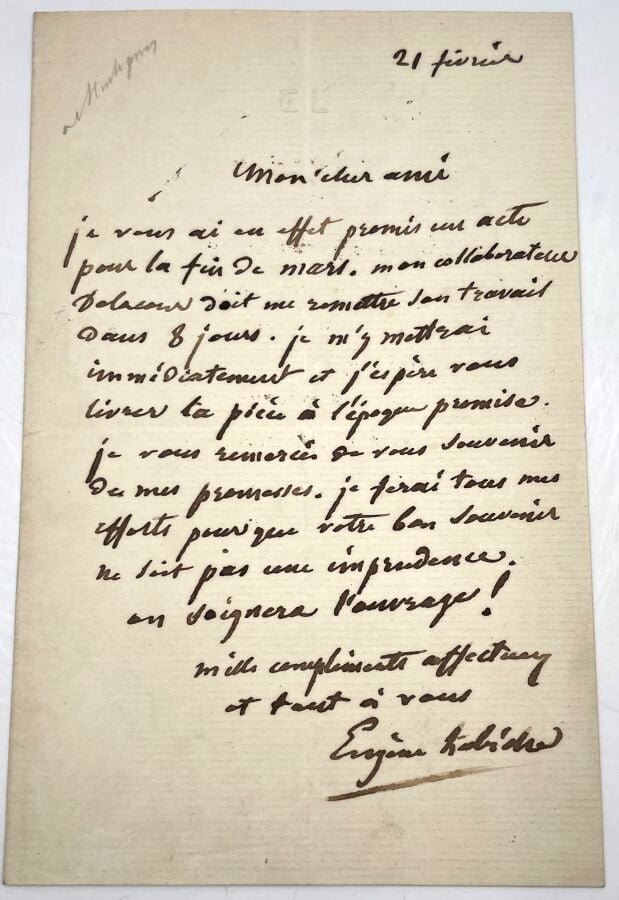 à Montigny
21 février
EL
Mon cher ami
je vous ai en effet promis un acte
pour la fin de mars. mon collaborateur
Delacour doit me remettre son travail
dans 8 jours. je m'y mettrai
immédiatement et j'espère vous
livrer la pièce à l'époque promise.
je vous remercie de vous souvenir
de mes promesses. je ferai tous mes
efforts pour que votre bon souvenir
ne soit pas une imprudence.
on soignera l'ouvrage!
mille compliments affectueux
et tout à vous
Eugène Labiche